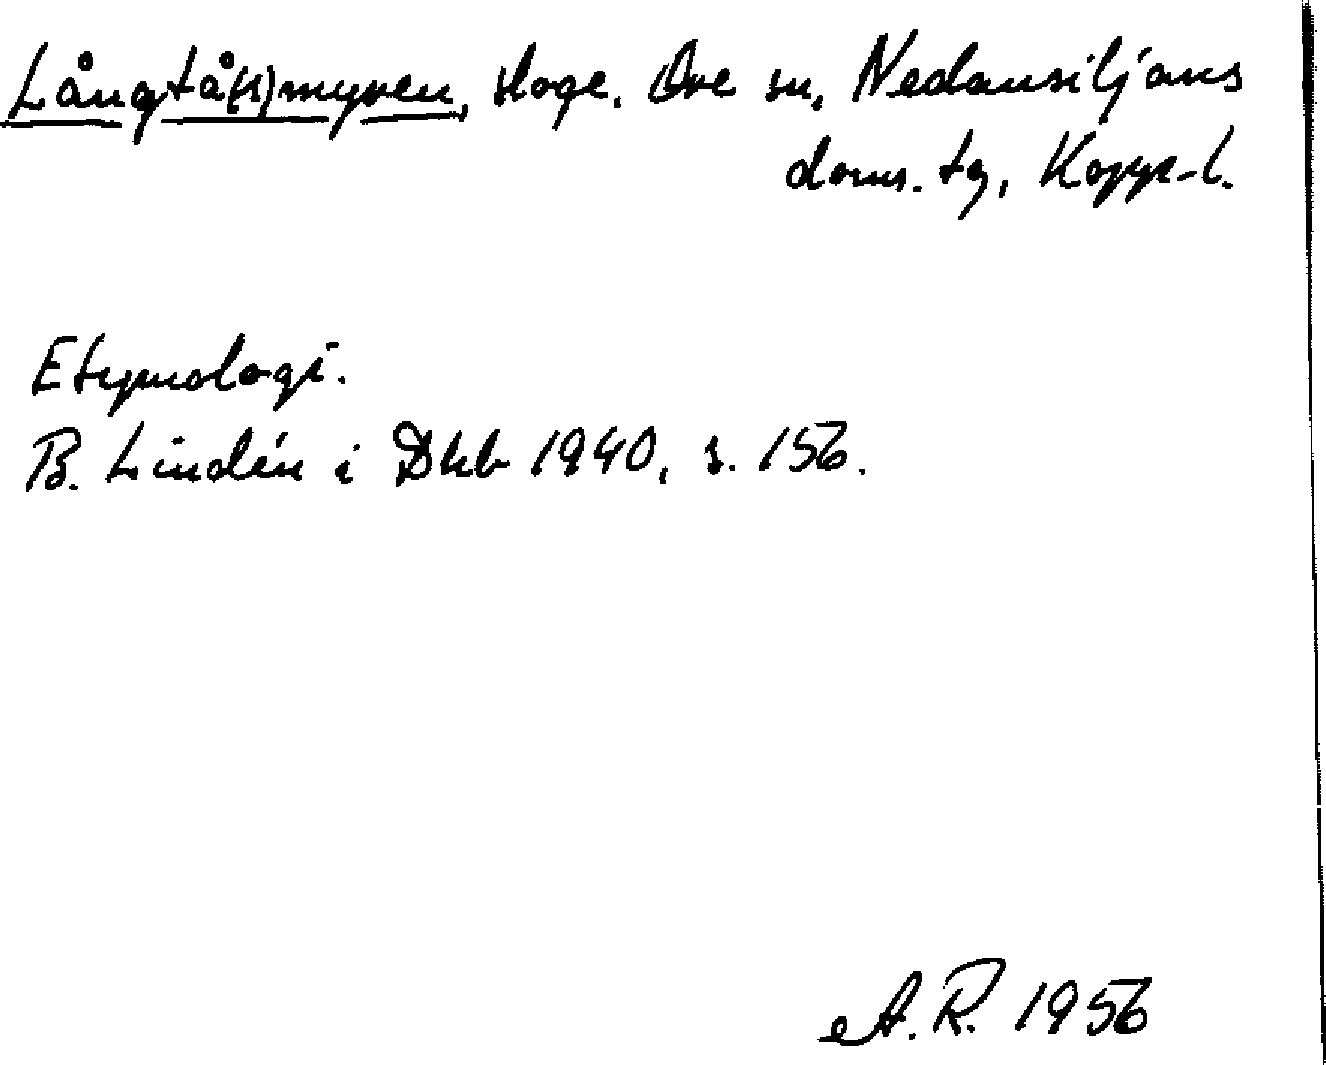 Långtå(s)myren, skoge. Ore sn, Nedansiljans
doms. tg, Kopp-l.
Etymologi.
B. Lindén i Dhb 1940, s. 156.
A. R. 1956